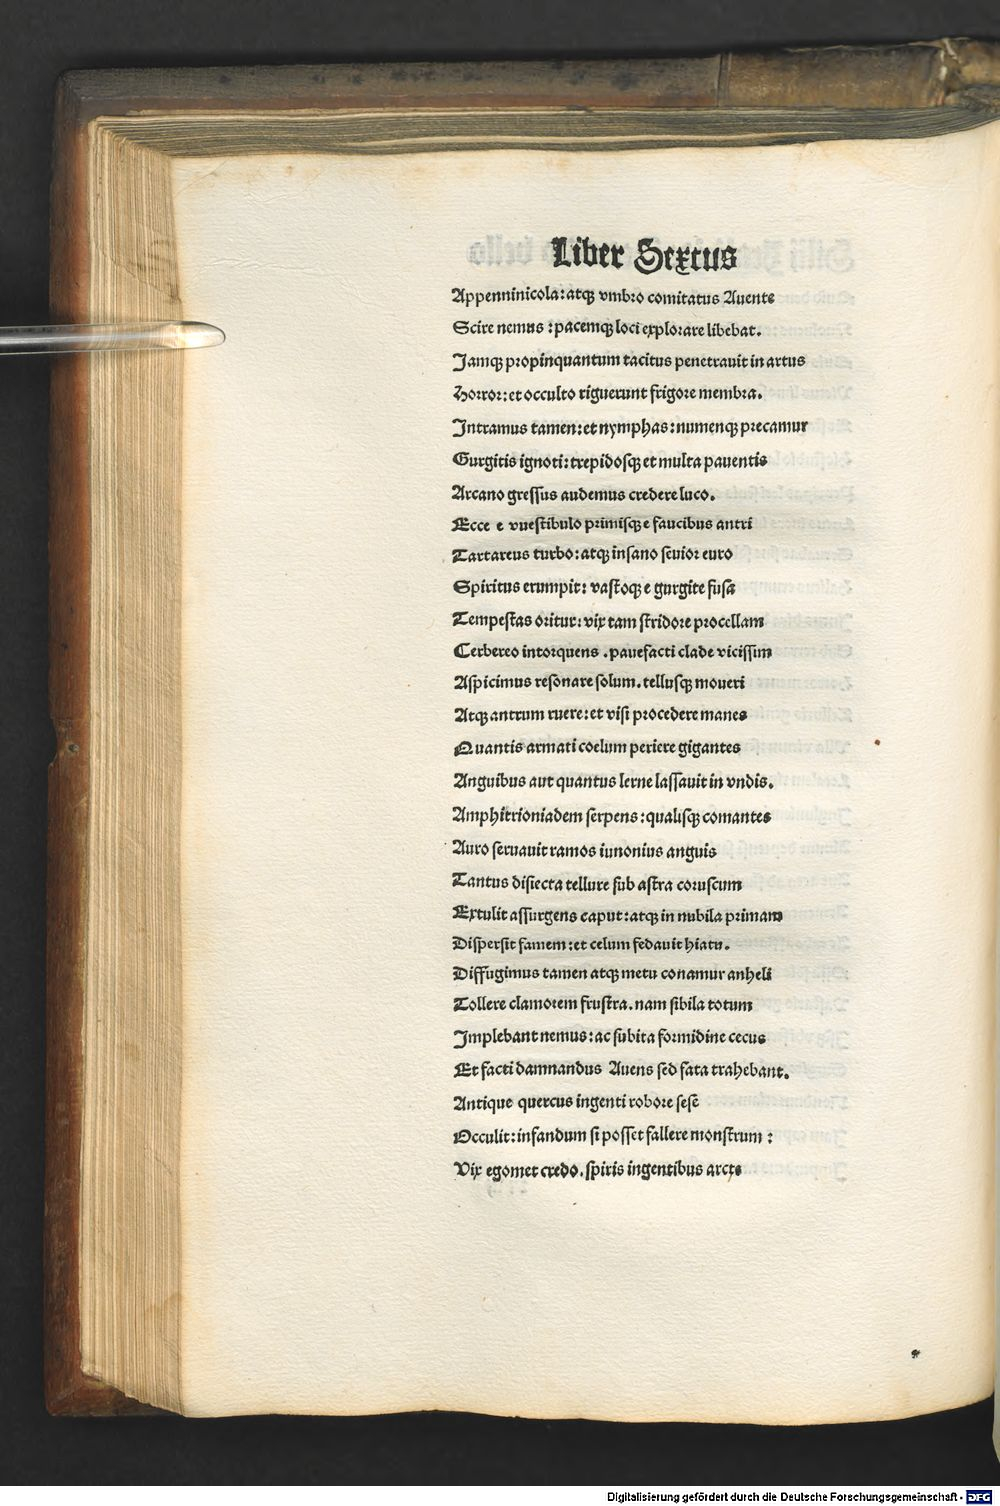 Liber Sextus
Appenninicola: atqꝫ vmbro comitatus Auente
Scire nemus : pacemqꝫ loci explorare libebat.
Jamqꝫ propinquantum tacitus penetrauit in artus
Horror: et occulto riguerunt frigore membra.
Intramus tamen: et nymphas: numenqꝫ precamur
Gurgitis ignoti: trepidosqꝫ et multa pauentis
Arcano gressus audemus credere luco.
Ecce e vuestibulo primisqꝫ e faucibus antri
Tartareus turbo: atqꝫ insano seuior euro
Spiritus erumpit: vastoqꝫ e gurgite fusa
Tempestas oritur: vix tam stridore procellam
Cerbereo intorquens . pauefacti clade vicissim
Aspicimus resonare solum. tellusqꝫ moueri
Atqꝫ antrum ruere: et visi procedere manes
Quantis armati coelum periere gigantes
Anguibus aut quantus lerne lassauit in vndis.
Amphitrioniadem serpens : qualisqꝫ comantes
Auro seruauit ramos iunonius anguis
Tantus disiecta tellure sub astra coruscum
Extulit assurgens caput: atqꝫ in nubila primam
Dispersit samem: et celum fedauit hiatu.
Diffugimus tamen atqꝫ metu conamur anheli
Tollere clamorem frustra. nam sibila totum
Implebant nemus: ac subita formidine cecus
Et facti damnandus Auens sed fata trahebant.
Antique quercus ingenti robore sesē
Occulit: infandum si posset fallere monstrum :
Vix egomet credo. spiris ingentibus arcte
Digitalisierung gefördert durch die Deutsche Forschungsgemeinschaft - DFG